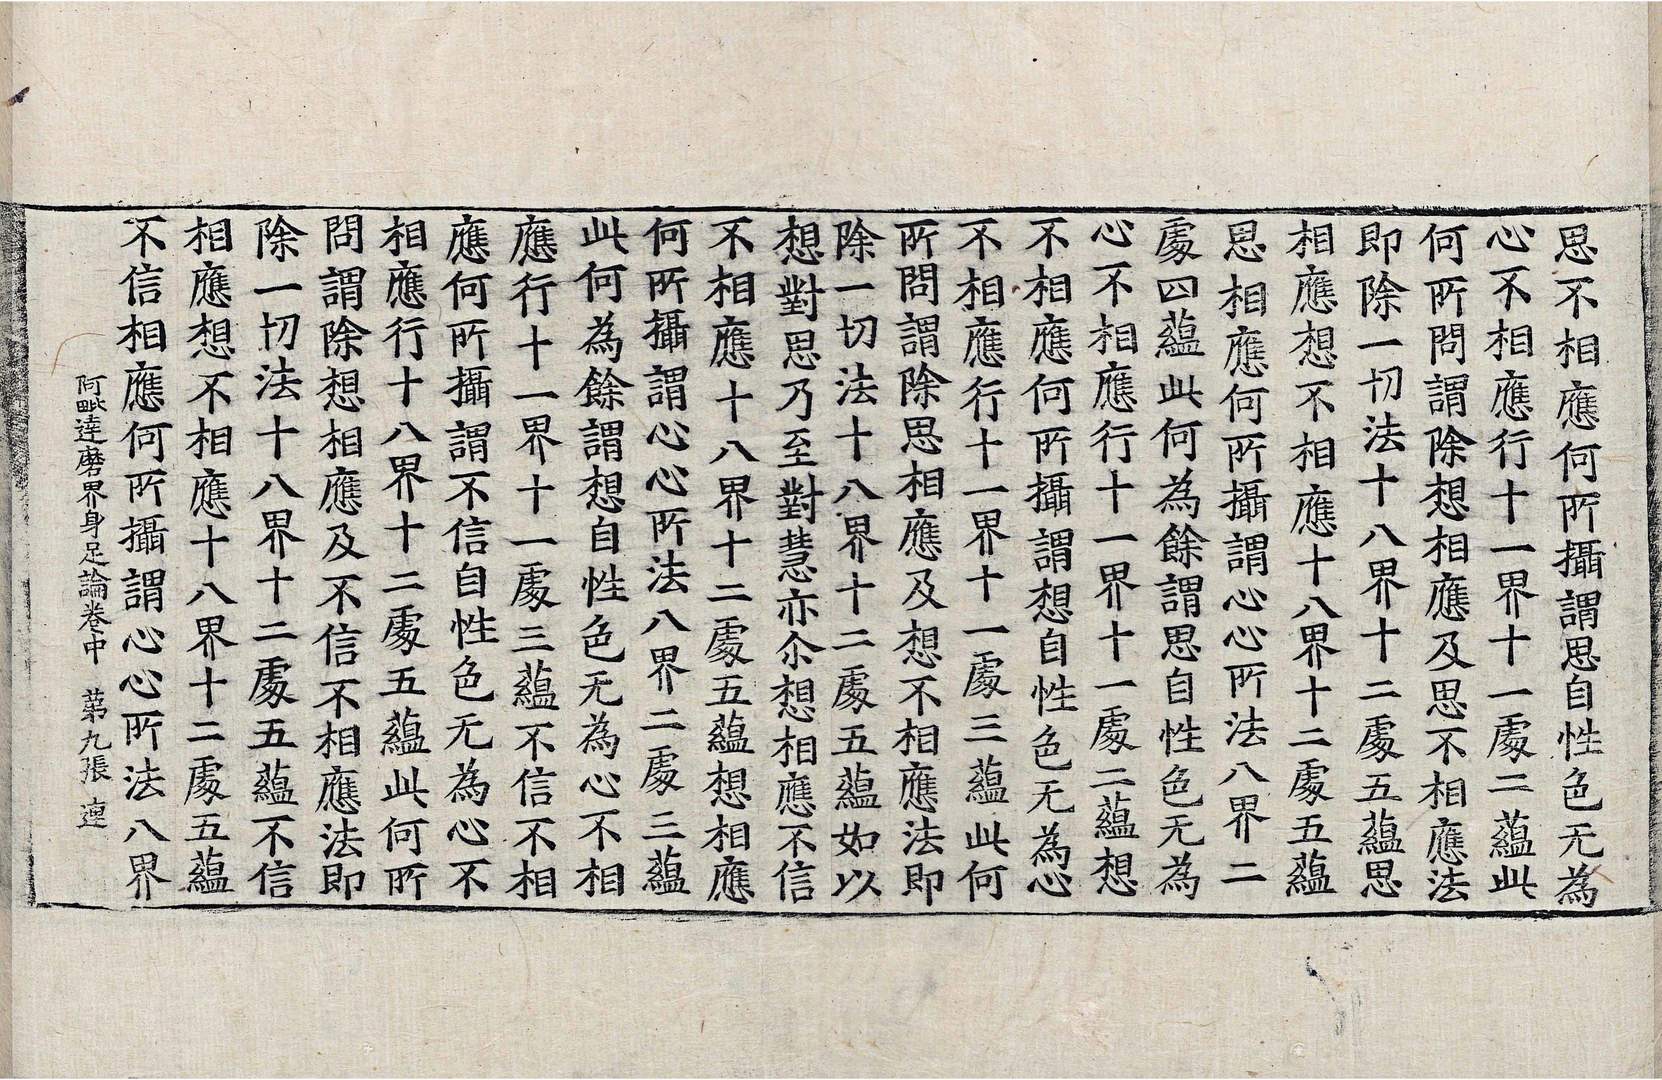 思不相應何所攝謂思自性色无為
心不相應行十一界十一處二蘊此
何所問謂除想相應及思不相應法
即除一切法十八界十二處五蘊思
相應想不相應十八界十二處五蘊
思相應何所攝謂心心所法八界二
處四蘊此何為餘謂思自性色无為
心不相應行十一界十一處二蘊想
不相應何所攝謂想自性色无為心
不相應行十一界十一處三蘊此何
所問謂除思相應及想不相應法即
除一切法十八界十二處五蘊如以
想對思乃至對慧亦尒想相應不信
不相應十八界十二處五蘊想相應
何所攝謂心心所法八界二處三蘊
此何為餘謂想自性色无為心不相
應行十一界十一處三蘊不信不相
應何所攝謂不信自性色无為心不
相應行十八界十二處五蘊此何所
問謂除想相應及不信不相應法即
除一切法十八界十二處五蘊不信
相應想不相應十八界十二處五蘊
不信相應何所攝謂心心所法八界
阿毗達磨界身足論卷中 苐九張 逗